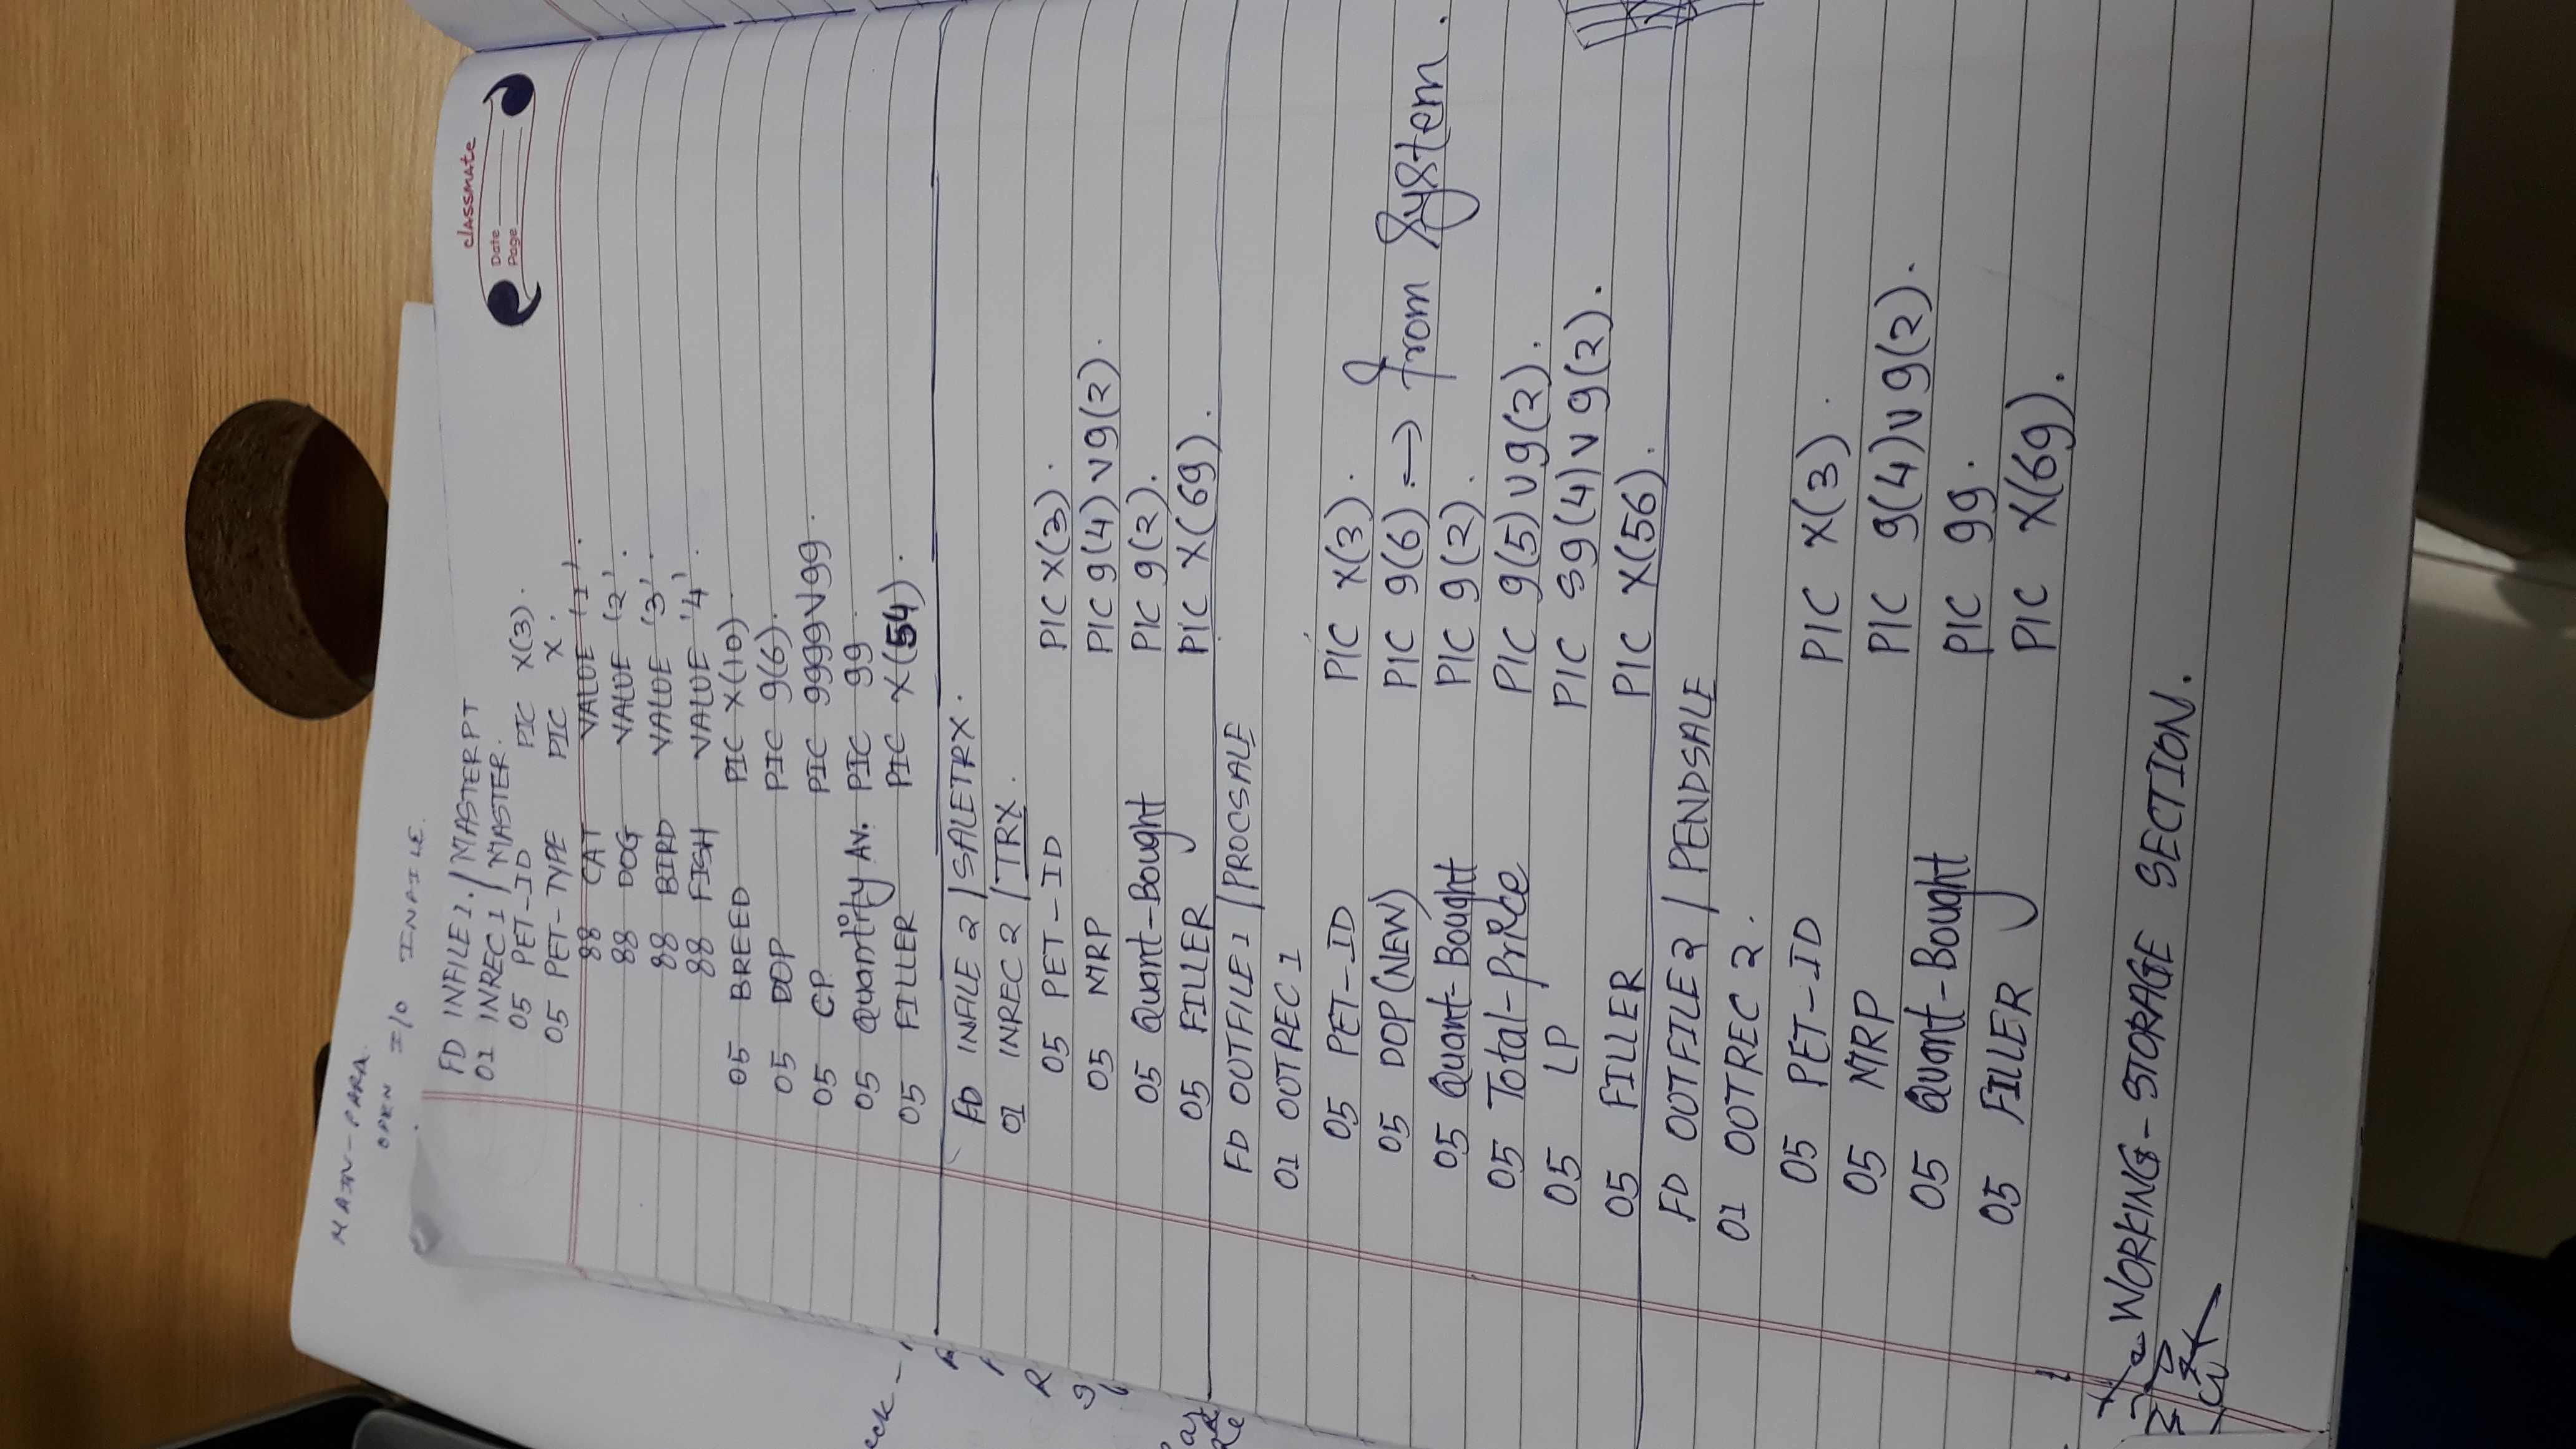 MAIN-PARA.
OPEN I/O INFILE.
classmate
Date
Page
FD INFILE 1. / MASTERPT
01 INREC 1 / MASTER.
05 PET-ID PIC X(3).
05 PET-TYPE PIC X.
88 CAT VALUE '1'.
88 DOG VALUE '2'.
88 BIRD VALUE '3'.
88 FISH VALUE '4'.
05 BREED PIC X(10).
05 DOP PIC 9(6).
05 CP PIC 9999V99.
05 Quantity Av. PIC 99.
05 FILLER PIC X(54).
FD INFILE 2 / SALETRX.
01 INREC 2 / TRX.
05 PET-ID PIC X(3).
05 MRP PIC 9(4)V9(2).
05 Quant-Bought PIC 9(2).
05 FILLER PIC X(69).
FD OUTFILE 1 / PROCSALE
01 OUTREC 1
05 PET-ID PIC X(3).
05 DOP(NEW) PIC 9(6). → from System.
05 Quant-Bought PIC 9(2).
05 Total-price PIC 9(5)V9(2).
05 LP PIC S9(4)V9(2).
05 FILLER PIC X(56).
FD OUTFILE 2 / PENDSALE
01 OUTREC 2.
05 PET-ID PIC X(3).
05 MRP PIC 9(4)V9(2).
05 Quant-Bought PIC 99.
05 FILLER PIC X(69).
WORKING-STORAGE SECTION.